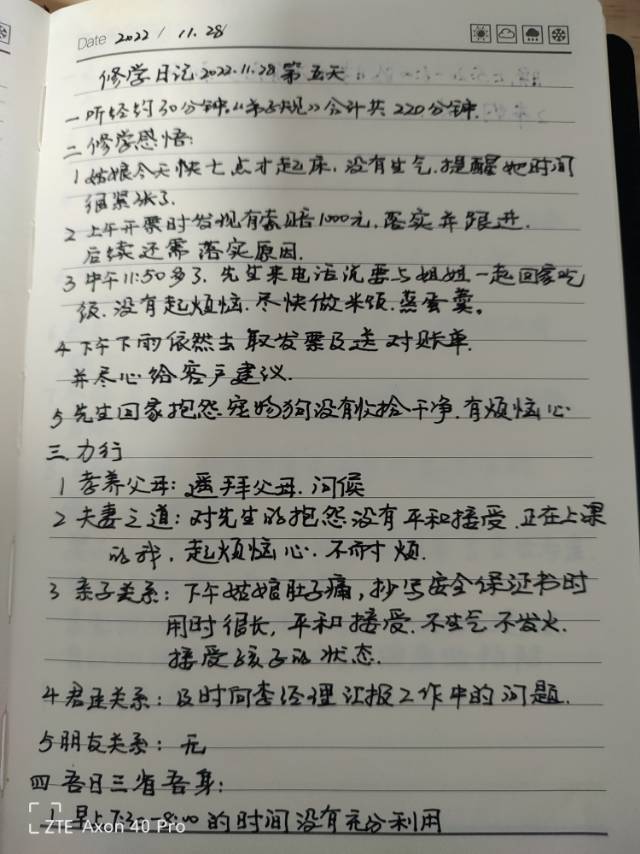 Date 2022 / 11.28
修学日记2022.11.28第五天
一.听经约30分钟.《弟子规》合计共220分钟.
二.修学感悟:
1姑娘今天快七点才起床,没有生气.提醒她时间
很紧张了.
2上午开票时发现有索赔1000元,落实并跟进.
后续还需落实原因.
3中午11:50多了.先生来电话说要与姐姐一起回家吃
饭.没有起烦恼.尽快做米饭.蒸蛋羹。
4下午下雨依然去取发票及送对账单.
并尽心给客户建议.
5先生回家抱怨宠物狗没有收拾干净.有烦恼心
三.力行
1孝养父母:遥拜父母.问候
2夫妻之道:对先生的抱怨没有平和接受.正在上课
的我,起烦恼心.不耐烦.
3亲子关系:下午姑娘肚子痛,抄写安全保证书时
用时很长,平和接受.不生气不发火.
接受孩子的状态.
4君臣关系:及时向李经理汇报工作中的问题.
5朋友关系:无
四吾日三省吾身:
1.早上7:30-8:00的时间没有充分利用
ZTE Axon 40 Pro